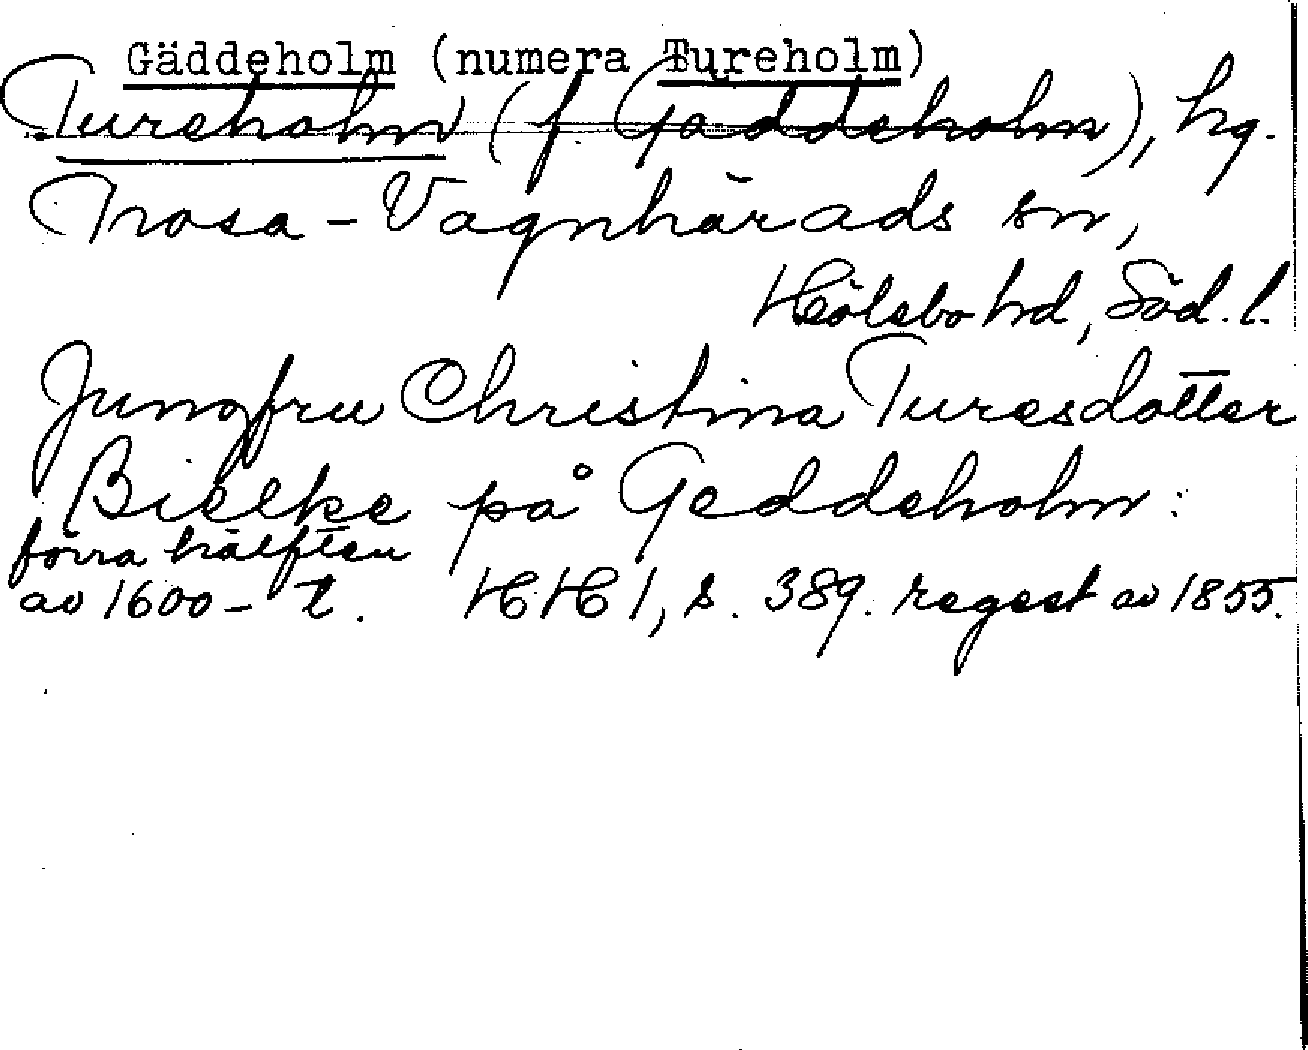 Gäddeholm (numera Tureholm)
Tureholm (f. Gäddeholm), hg.
Trosa-Vagnhärads sn,
Hölebo hd, Söd. l.
Jungfru Christina Turesdotter
Bielke på Geddeholm:
förra hälften
av 1600-t. HH 1, s. 389. regest av 1855.